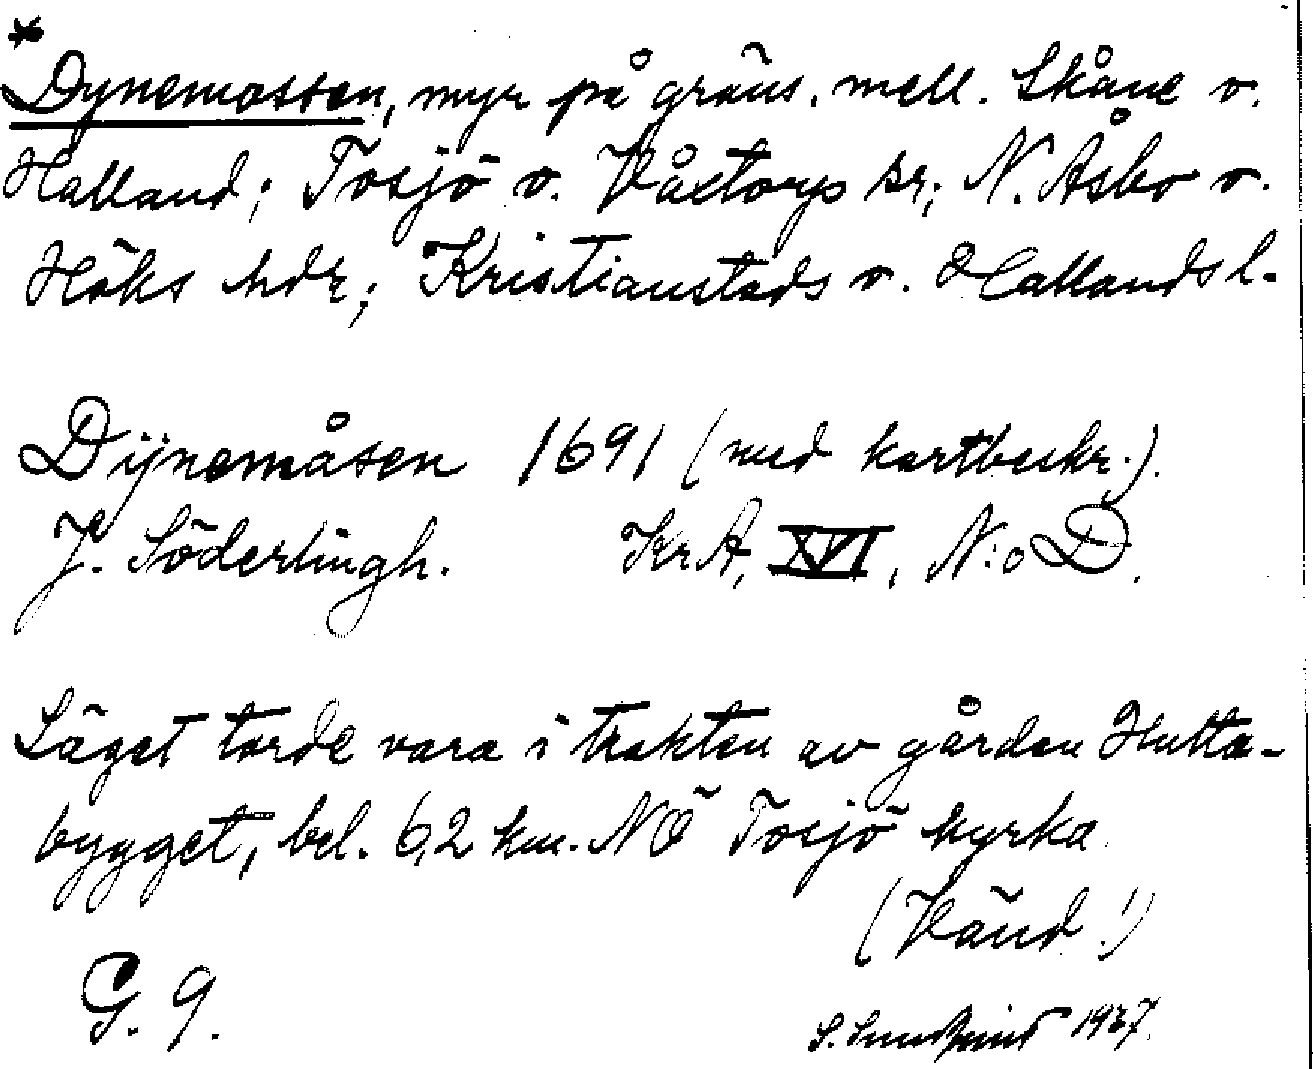 *
Dynemossen, myr på gräns. mell. Skåne o.
Halland; Tosjö o. Våxtorps sr; N. Åsbo o.
Höks hdr; Kristianstads o. Hallands l.
Dÿnemåsen 1691 (med kartbeskr.).
J. Söderlingh. KrA, XVI, N:o D.
Läget torde vara i trakten av gården Hutta-
bygget, bel. 6,2 km. NÖ Tosjö kyrka.
(Vänd!)
G. 9.
S. 1937.